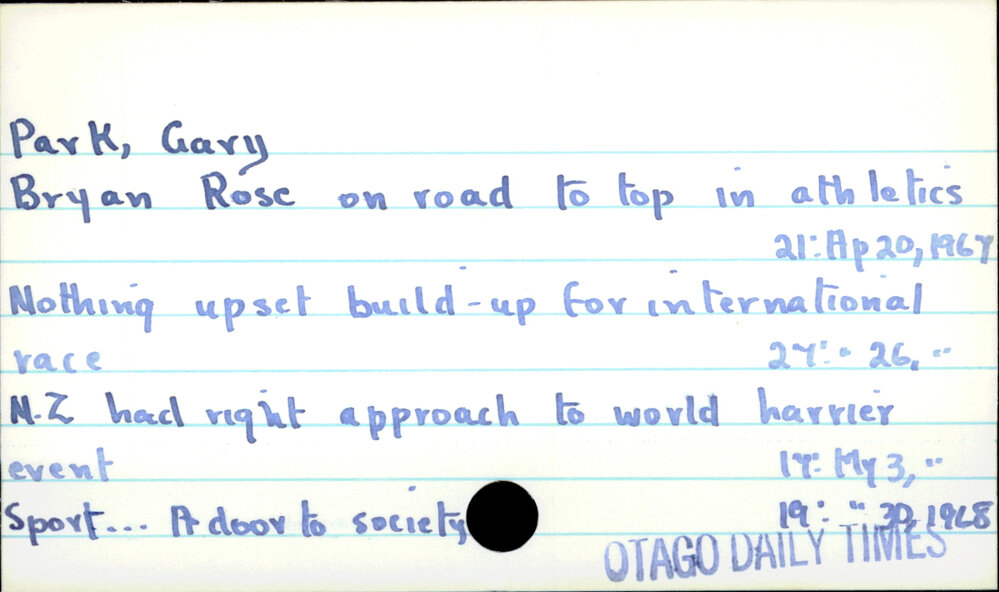 Park, Gary
Bryan Rose on road to top in athletics
21: Ap 20, 1967
Nothing upset build-up for international
race 27: " 26, "
N.Z had right approach to world harrier
event 17: My 3, "
Sport... A door to society 19: " 30, 1968
OTAGO DAILY TIMES